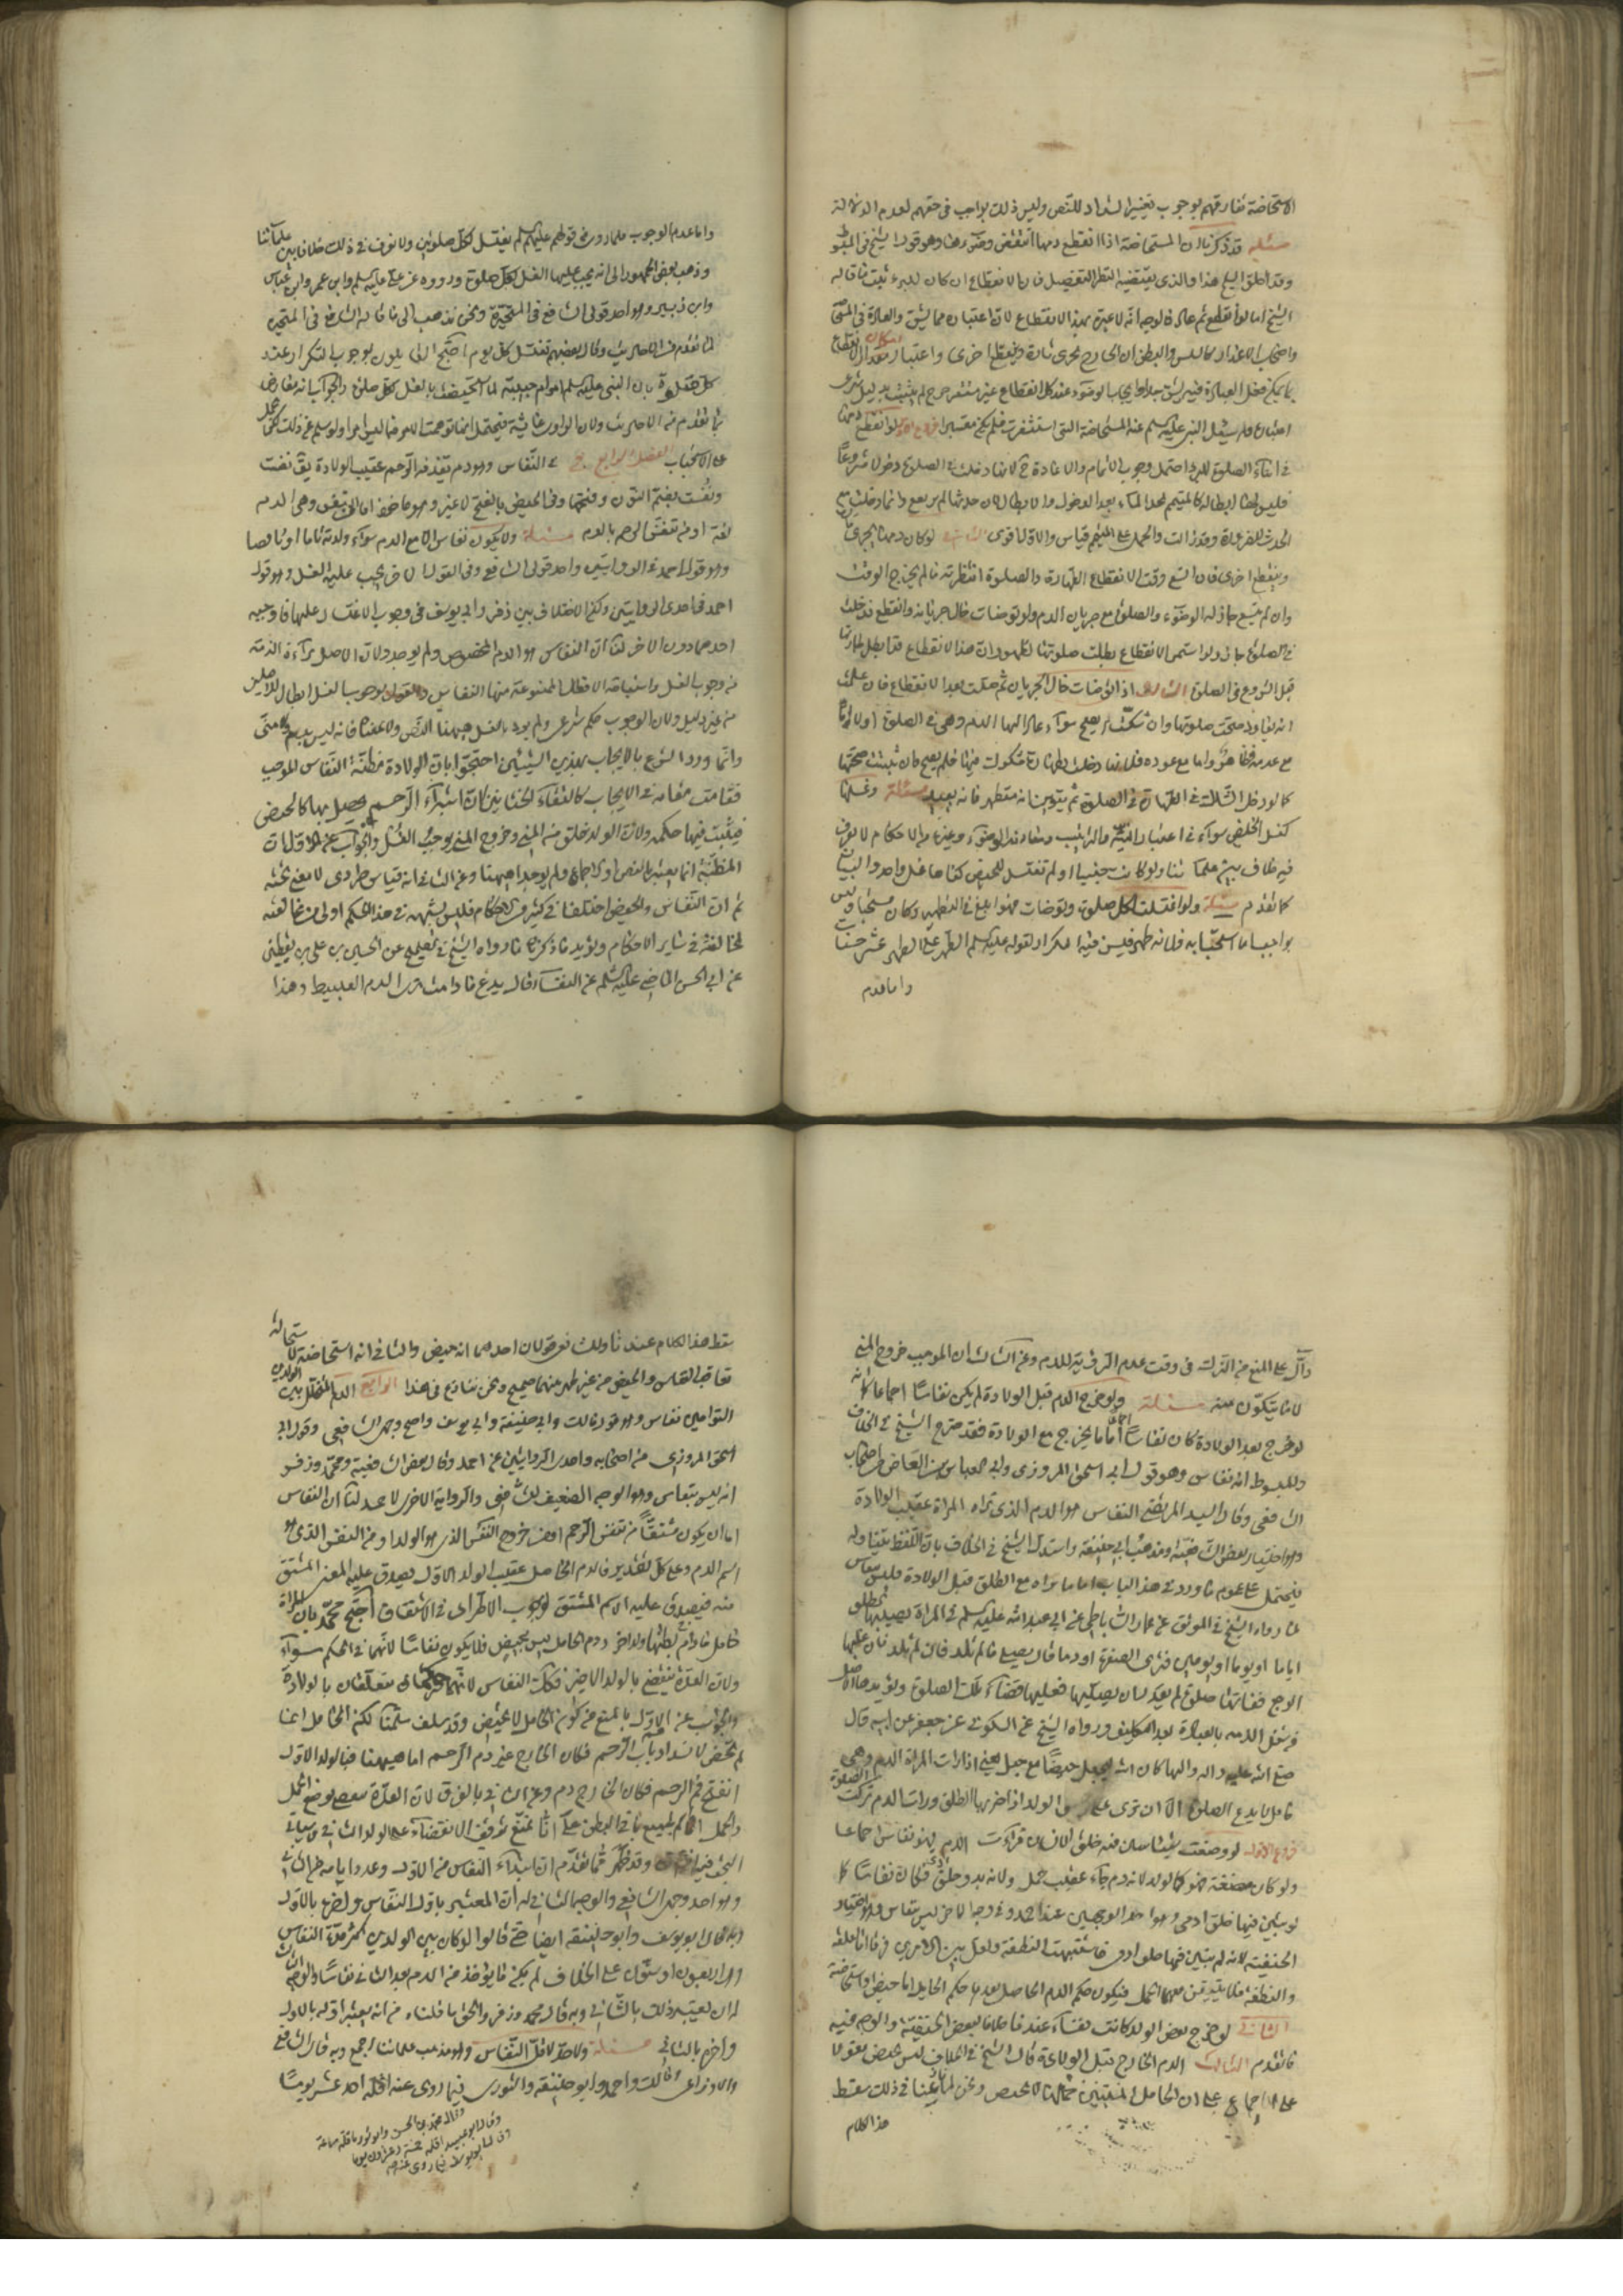 الاستحاضة تفارقهم بوجوب تغيير الشداد للنص وليس ذلك بواجب في حقهم لعدم الدلالة
مسئلة قد ذكرنا ان المستحاضة اذا انقطع دمها انتقض وضوءها وهو قول الشيخ في المبسوط
وقد اطلق الشيخ هذا والذي يقتضيه النظر التفصيل فان الانقطاع ان كان للبرء ثبت ما قاله
الشيخ اما لو انقطع ثم عاد فالوجه انه لا عبرة بهذا الانقطاع لان اعتباره مما يشق والعادة في المستحاضة
واصحاب الاعذار كالسلس والبطن ان الخارج يجري تارة وينقطع اخرى واعتبار مقدار الانقطاع
بما يمكن فعل العبادة فيه يشق وايجاب الوضوء عند كل انقطاع غير مستقر حرج لم يثبت بدليل شرعي
النبي عليه السلم عنه المستحاضة التي استثفرت فلم يكن معتبرا فروع الاول لو انقطع دمها
في اثناء الصلوة للبرء احتمل وجوب الاتمام والاعادة لانها دخلت في الصلوة دخولا مشروعا
فليس لها ابطالها كالمتيمم يجد الماء بعد الدخول والابطال لان حدثها لم يرتفع وانما دخلت مع
الحدث للضرورة وقد زالت والحمل على المتيمم قياس والاول اقوى الثاني لو كان دمها يجري
وينقطع اخرى فان اتسع وقت الانقطاع الطهارة والصلوة انتظرته ما لم يخرج الوقت
وان لم يتسع جاز لها الوضوء والصلوة مع جريان الدم ولو توضات حال جريانه وانقطع فدخلت
في الصلوة جاز ولو استمر الانقطاع بطلت صلوتها لظهور ان هذا الانقطاع قد ابطل طهارتها
قبل الشروع في الصلوة الثالث اذا توضات حال الجريان ثم صلت بعد الانقطاع فان علمت
انه يعاود صحت صلوتها وان شكت لم يصح سواء عاد اليها الدم وهي في الصلوة اولا اما
مع عدمه فظاهر واما مع عوده فلانها دخلت بطهارة مشكوك فيها فلم يصح وان ثبتت صحتها
كما لو دخل الشاك في الطهارة في الصلوة ثم يتبين انه متطهر فانه يعيد مسئلة وغسلها
كغسل الحايض سواء في اعتبار النية والترتيب ومقارنة الوضوء وغيرها من الاحكام لا نعرف
فيه خلاف بين علمائنا ولو كانت جنبا او لم تغتسل للحيض كفاها غسل واحد والبيان
كما تقدم مسئلة ولو اغتسلت لكل صلوة وتوضات فهو ابلغ في التطهير وكان مستحبا وليس
بواجب اما استحبابه فلانه طهر فيسن فيه التكرار لقوله عليه السلم الطهر على الطهر عشر حسنات
واما عدم
واما عدم الوجوب فلما روى في قولهم عليهم السلم يغتسل لكل صلوتين ولا نعرف في ذلك خلافا بين علمائنا
وذهب بعض الجمهور الى انه يجب عليها الغسل لكل صلوة ورووه عن علي عليه السلم وابن عمر وابن عباس
وابن زبير وهو احد قولي الشافعي في المتحيرة ونحن نذهب الى ما قاله الشافعي في المتحيرة
لما تقدم من الاحاديث وقال بعضهم تغتسل كل يوم احتج القائلون بوجوب التكرار عند
كل صلوة بان النبي عليه السلم امر ام حبيبة لما استحيضت بالغسل لكل صلوة والجواب انه معارض
بما تقدم من الاحاديث ولان الراوي عايشة فيحتمل انها توهمت ما ليس امرا ولو سلم غير ذلك حمل
على الاستحباب الفصل الرابع في النفاس وهو دم يقذفه الرحم عقيب الولادة يق نفست
ونفست بضم النون وفتحها وفي الحيض بالفتح لا غير وهو ماخوذ اما من النفس وهي الدم
لغة او من تنفس الرحم بالدم مسئلة ولا يكون نفاس الا مع الدم سواء ولدته تاما او ناقصا
وهو قول احمد في احدى الروايتين واحد قولي الشافعي وفي القول الاخر يجب عليه الغسل وهو قول
احمد في احدى الروايتين وكذا الاختلاف بين زفر وابي يوسف في وجوب الاغتسال عليها فاوجبه
احدهما دون الاخر لنا ان النفاس هو الدم المخصوص ولم يوجد ولان الاصل براءة الذمة
من وجوب الغسل واستباحة الافعال الممنوعة منها النفاس فالقول بوجوب الغسل ابطال للاصلين
من غير دليل ولان الوجوب حكم شرعي ولم يرد بالغسل هيهنا النص ولا معناه فانه ليس بدم ولا مني
وانما ورد الشرع بالايجاب بهذين الشيئين احتجوا بان الولادة مظنة النفاس الموجب
فقامت مقامه في الايجاب كالتقاء الختانين لان استبراء الرحم يحصل بها كالحيض
فيثبت فيها حكمه ولان الولد خلق من المني وخروج المني يوجب الغسل والجواب عن الاول ان
المظنة انما يعتبر بالنص او الاجماع ولم يوجد هيهنا وعن الثاني انه قياس طردي لا معنى تحته
ثم ان النفاس والحيض اختلفا في كثير من الاحكام فليس تشبهه في هذا الحكم اولى من مخالفته
لمخالفته في سائر الاحكام ويؤيد ما ذكرنا ما رواه الشيخ في الصحيح عن الحسين بن علي بن يقطين
عن ابي الحسن الماضي عليه السلم عن النفساء قال تدع ما دامت ترى الدم العبيط وهذا
دال على المنع من الترك في وقت عدم الرؤية للدم وعن الثالث ان الموجب خروج المني
لا ما يتكون منه مسئلة ولو خرج الدم قبل الولادة لم يكن نفاسا اجماعا كما انه
لو خرج بعد الولادة كان نفاسا اما ما يخرج مع الولادة فقد صرح الشيخ في الخلاف
والمبسوط انه نفاس وهو قول ابي اسحق المروزي وابي العباس بن القاص من اصحاب
الشافعي وقال السيد المرتضى النفاس هو الدم الذي تراه المراة عقيب الولادة
وهو اختيار بعض الشافعية ومذهب ابي حنيفة واستدل الشيخ في الخلاف بان اللفظ يتناوله
فيحتمل على عموم ما ورد في هذا الباب اما ما تراه مع الطلق قبل الولادة فليس بنفاس
لما رواه الشيخ في الموثق عن عمار الساباطي عن ابي عبد الله عليه السلم في المراة يصيبها الطلق
اياما او يوما او يومين فترى الصفرة او دما قال تصلي ما لم تلد فان غلبها
الوجع ففاتتها صلوة لم تقدر ان تصليها فعليها قضاء تلك الصلوة ويؤيد هذا
شغل الذمة بالعبادة بعد التكليف ورواه الشيخ عن السكوني عن جعفر عن ابيه قال
صلى الله عليه واله ما كان الله ليجعل حيضا مع حبل يعني اذا رات المراة الدم وهي
حامل لا تدع الصلوة الا ان ترى على راس الولد اذا ضربها الطلق ورات الدم تركت الصلوة
فروع الاول لو وضعت شيئا يتبين فيه خلق الانسان فرات الدم فهو نفاس اجماعا
ولو كان مضغة فهو كالولد لانه دم جاء عقيب حمل ولانه بدو خلق ادمي فكان نفاسا كما
لو تبين فيها خلق ادمي وهو احد الوجهين عند احمد وفي وجه الاخر ليس بنفاس وهو اختيار
الحنفية لانه لم يتبين فيها خلق ادمي فاشبهت النطفة اما العلقة
والنطفة فلا يتيقن معهما الحمل فيكون حكم الدم الحاصل بعدهما حكم الحايل اما حيض او استحاضة
الثاني لو خرج بعض الولد كانت نفساء عندنا خلافا لبعض الحنفية والوجه فيه
ما تقدم الثالث الدم الخارج قبل الولادة قال الشيخ في الخلاف ليس بحيض معولا
على الاجماع على ان الحامل المستبين حملها لا تحيض ونحن لما نازعنا في ذلك سقط
هذا الكلام
سقط هذا الكلام عندنا وللشافعي قولان احدهما انه حيض والثاني انه استحاضة لاستحالة
تعاقب النفاس والحيض من غير طهر بينهما صحيح ونحن ننازع في هذا الرابع الدم المتخلل بين الولدين
التوامين نفاس وهو قول مالك وابي حنيفة وابي يوسف واصح وجهي الشافعي وقول ابي
اسحق المروزي من اصحابه واحدى الروايتين عن احمد وقال بعض الشافعية ومحمد وزفر
انه ليس بنفاس وهو الوجه الضعيف للشافعي والرواية الاخرى لاحمد لنا ان النفاس
اما ان يكون مشتقا من تنفس الرحم او من خروج النفس الذي هو الولد او من النفس الذي هو
اسم الدم وعلى كل تقدير فالدم الحاصل عقيب الولد الاول يصدق عليه المعنى المشتق
منه فيصدق عليه الاسم المشتق لوجوب الاطراد في الاشتقاق احتج محمد بان المراة
حامل ما دام في بطنها ولد اخر ودم الحامل ليس بحيض فلا يكون نفاسا لانهما في الحكم سواء
ولان العدة ينقضي بالولد الاخير فكذا النفاس لانهما حكمان متعلقان بالولادة
والجواب عن الاول بالمنع من كون الحامل لا تحيض وقد سلف سلمنا لكن الحامل انما
لم تحض لانسداد باب الرحم فكان الخارج غير دم الرحم اما هيهنا فبالولد الاول
انفتح فم الرحم فكان الخارج دمه وعن الثاني بالفرق لان العدة تنقضي بوضع الحمل
والحمل اسم لجميع ما في البطن على انا نمنع توقف الانقضاء على الولد الثاني وسياتي
البحث فيه وقد ظهر مما تقدم ان ابتداء النفاس من الاول وعدد ايامه من الثاني
وهو احد وجهي الشافعي والوجه الثاني له ان المعتبر باول النفاس واخره بالاول
وبه قال ابو يوسف وابو حنيفة ايضا حتى قالوا لو كان بين الولدين اكثر مدة النفاس
وهو اربعون او ستون على الخلاف لم يكن ما يؤخذ من الدم بعد الثاني نفاسا والوجه الثالث
له ان يعتبر ذلك بالثاني وبه قال محمد وزفر والحق ما قلناه من انه يعتبر اوله بالاول
واخره بالثاني مسئلة ولا حد لاقل النفاس وهو مذهب علمائنا اجمع وبه قال الشافعي
والاوزاعي ومالك واحمد وابو حنيفة والثوري فيما روى عنه اقله احد عشر يوما
وقال محمد بن الحسن وابو ثور اقله ساعة
وقال ابو عبيد اقله خمسة وعشرون يوما